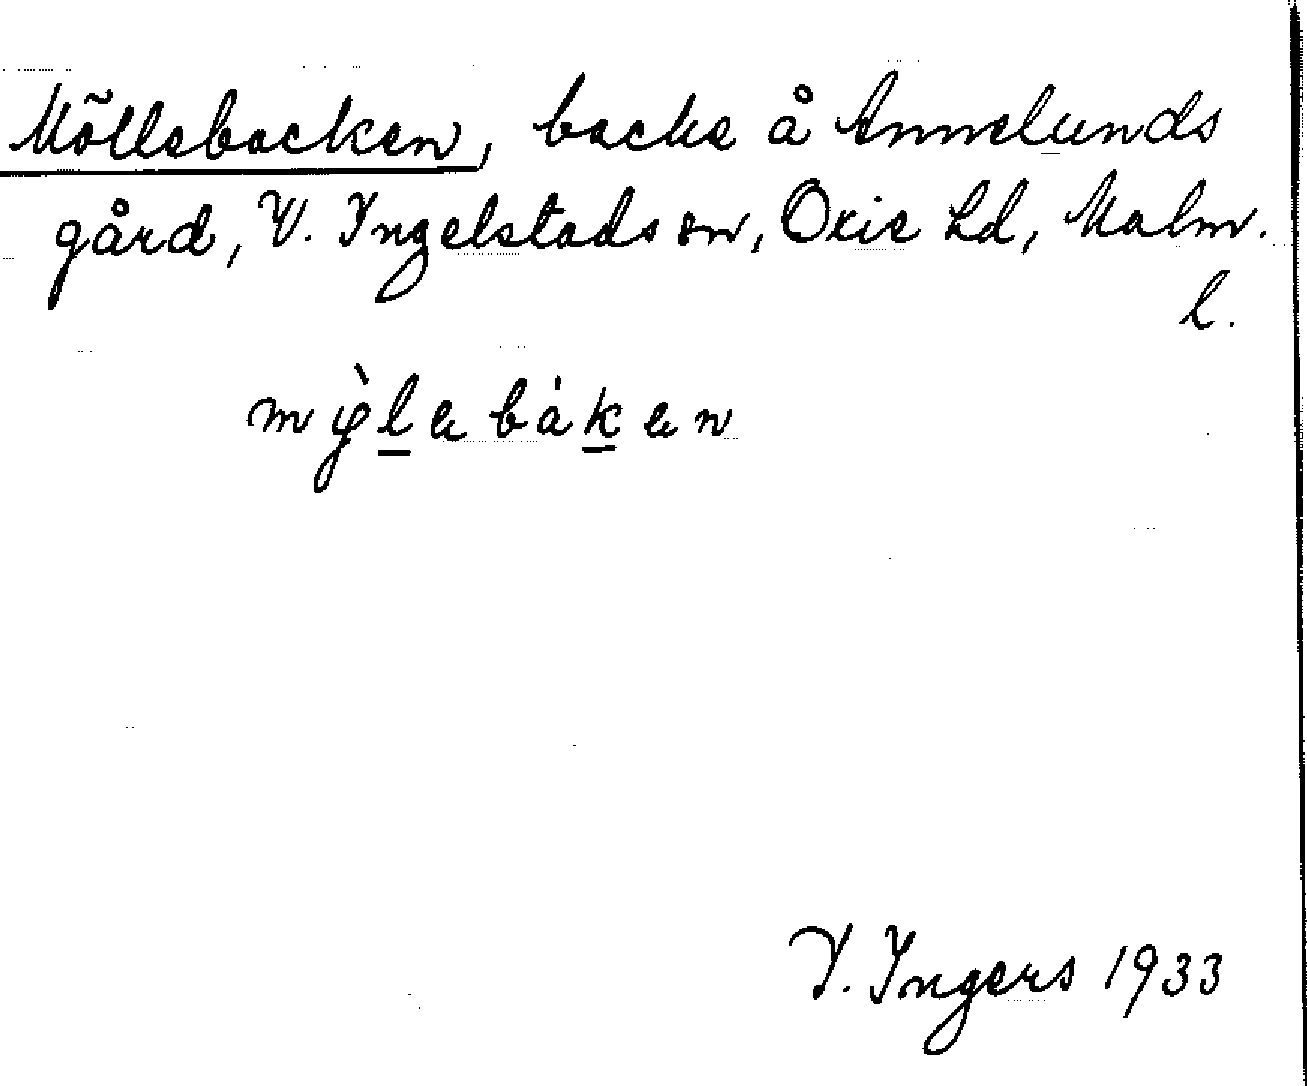 Möllebacken, backe å Annelunds
gård, V. Ingelstads sn, Oxie hd, Malm.
l.
mỳlebàken
V. Ingers 1933